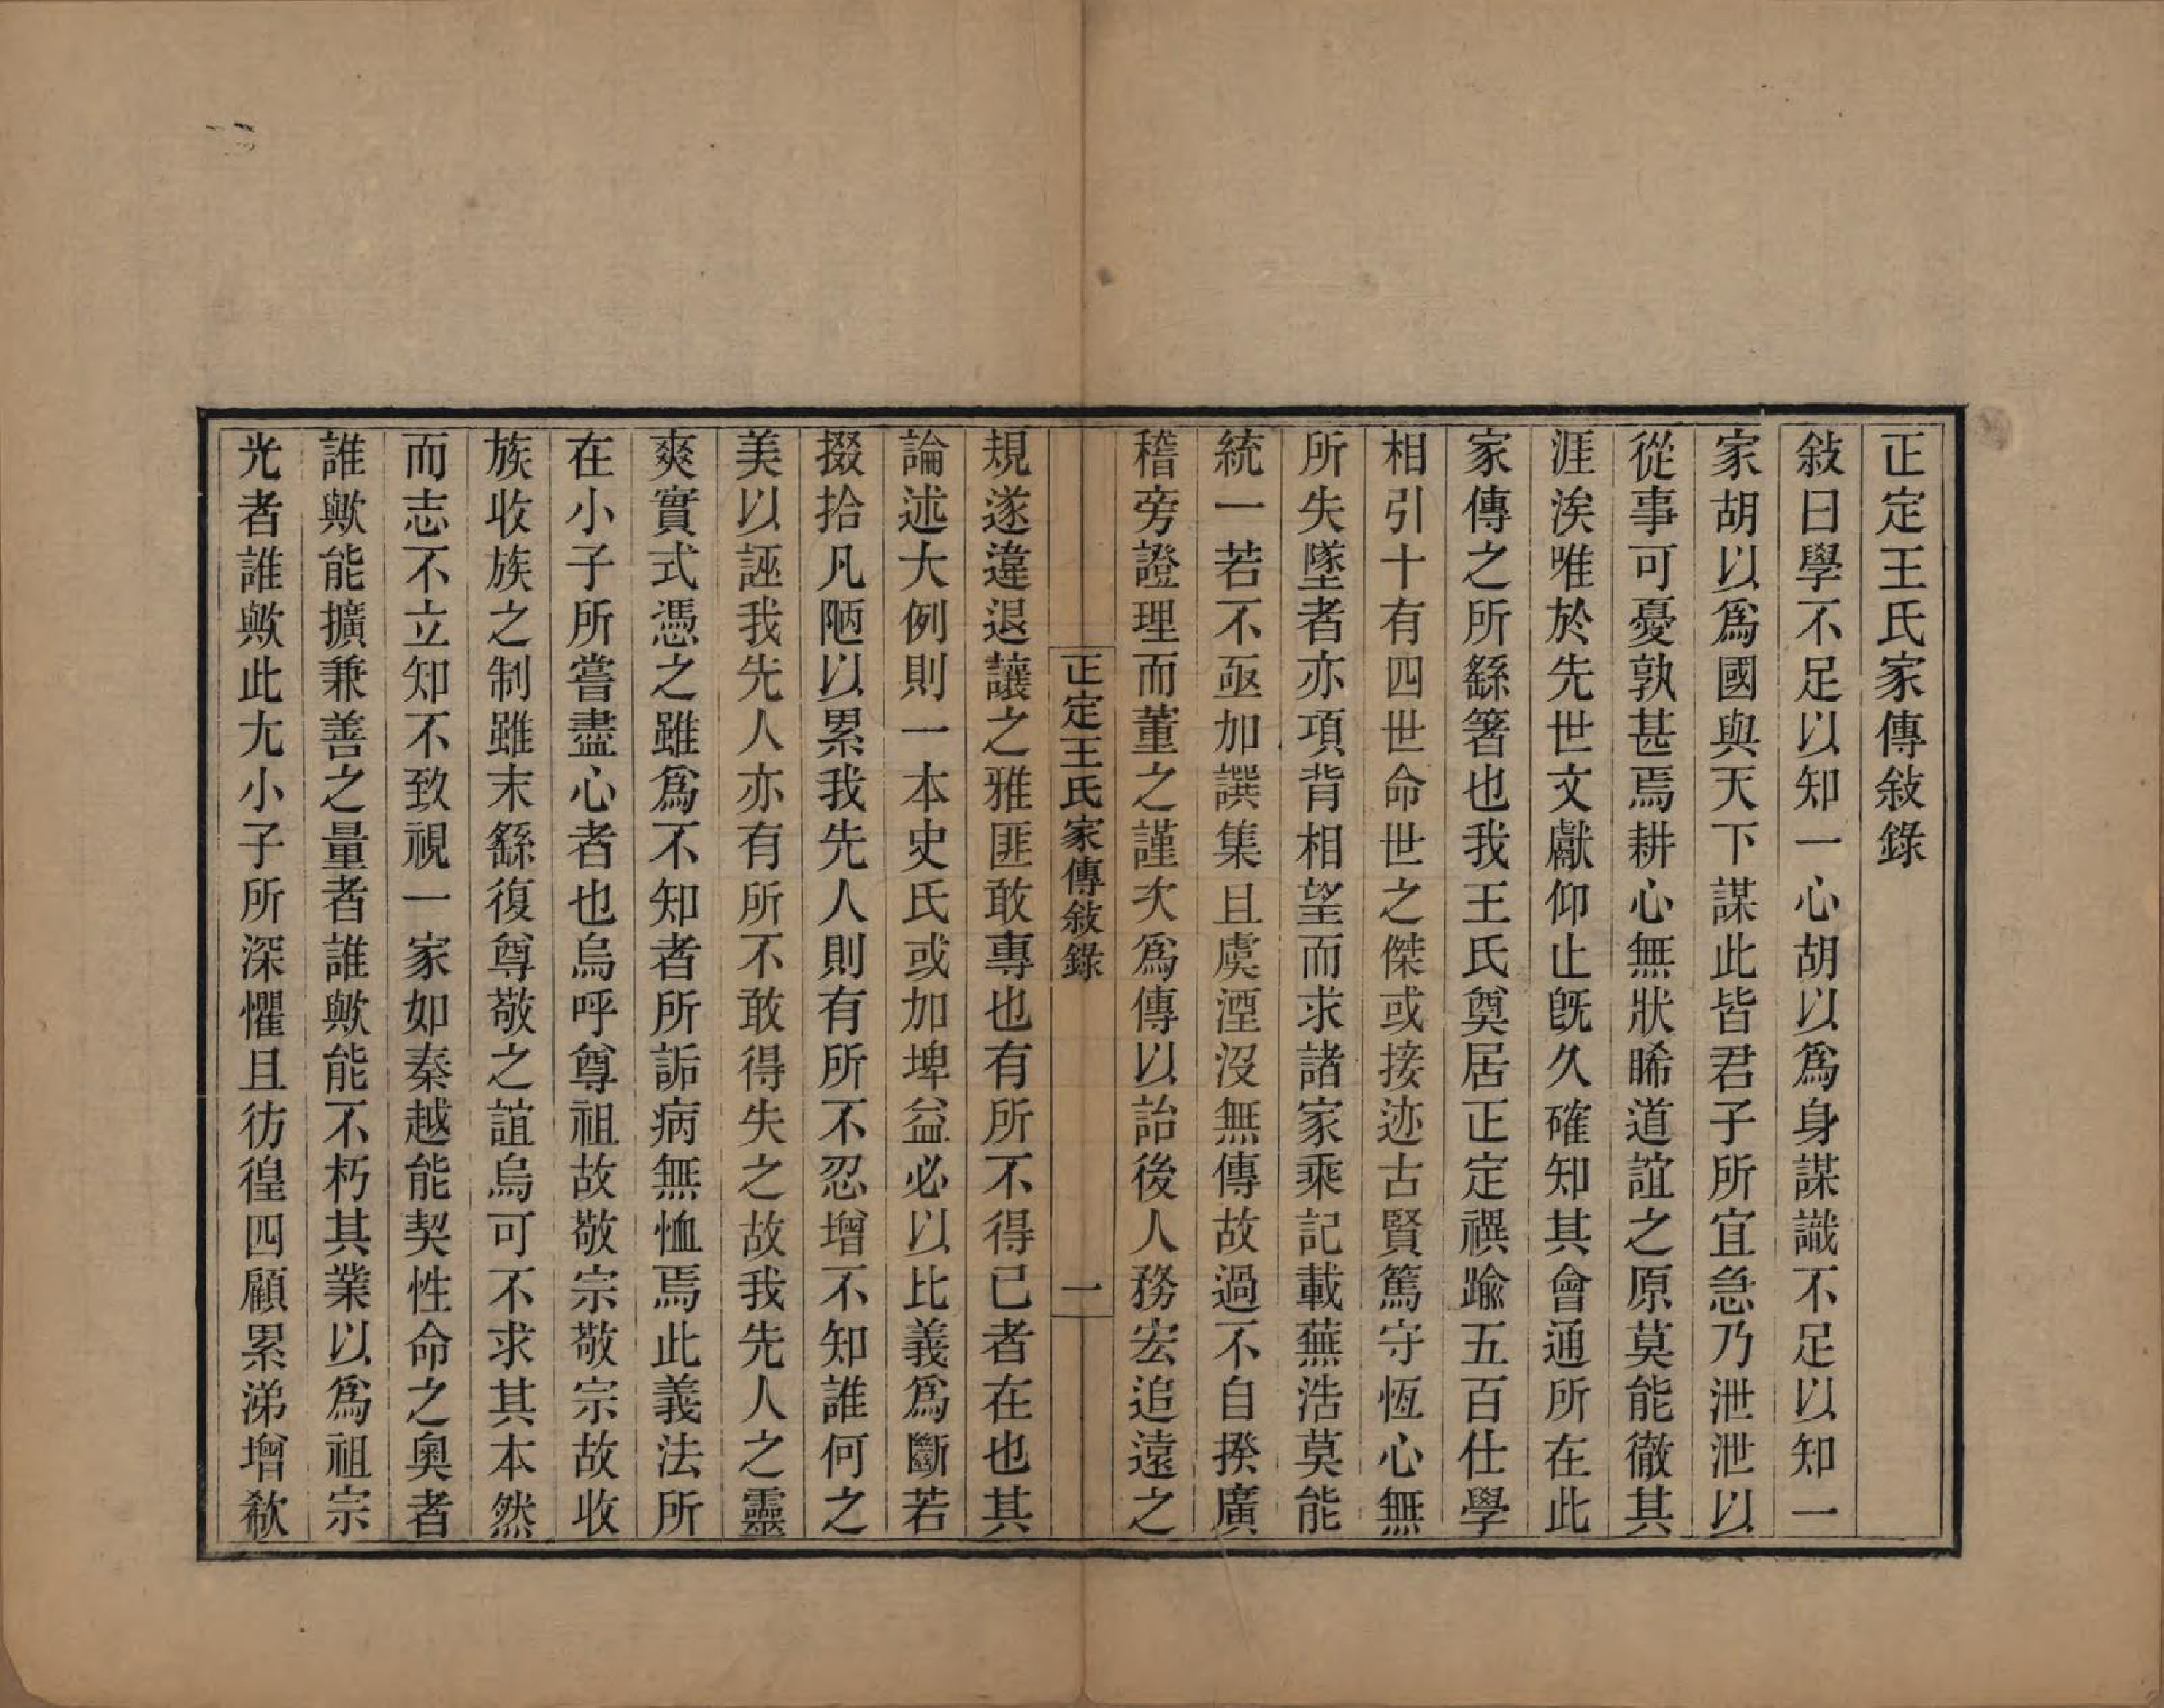 正定王氏家傳敍錄
敍曰學不足以知一心胡以爲身謀識不足以知一
家胡以爲國與天下謀此皆君子所宜急乃泄泄以
從事可憂孰甚焉耕心無狀睎道誼之原莫能徹其
涯涘唯於先世文獻仰止旣久確知其會通所在此
家傳之所繇箸也我王氏奠居正定禩踰五百仕學
相引十有四世命世之傑或接迹古賢篤守恆心無
所失墜者亦項背相望而求諸家乘記載蕪浩莫能
統一若不亟加譔集且虞湮沒無傳故過不自揆廣
稽旁證理而董之謹次爲傳以詒後人務宏追遠之
正定王氏家傳敍錄
一
規遂違退讓之雅匪敢專也有所不得已者在也其
論述大例則一本史氏或加埤益必以比義爲斷若
掇拾凡陋以累我先人則有所不忍增不知誰何之
美以誣我先人亦有所不敢得失之故我先人之靈
爽實式憑之雖爲不知者所詬病無恤焉此義法所
在小子所嘗盡心者也烏呼尊祖故敬宗敬宗故收
族收族之制雖末繇復尊敬之誼烏可不求其本然
而志不立知不致視一家如秦越能契性命之奧者
誰歟能擴兼善之量者誰歟能不朽其業以爲祖宗
光者誰歟此尢小子所深懼且彷徨四顧累涕增欷